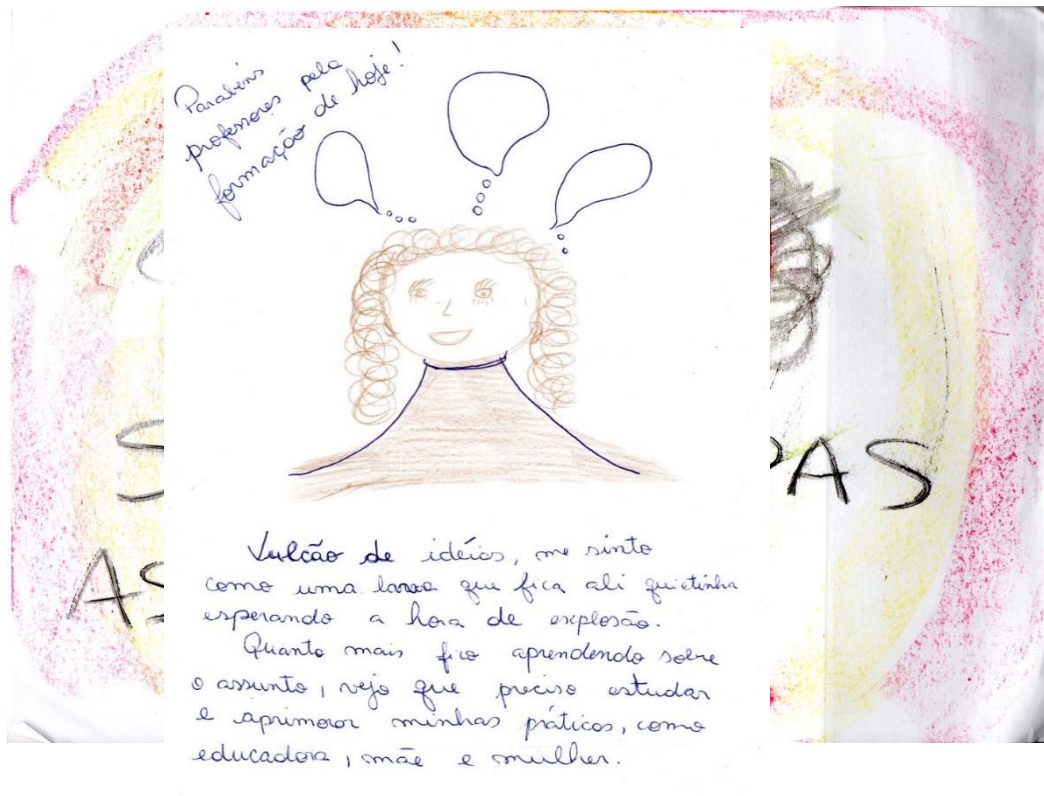 Parabéns
professores pela
formação de hoje!
Vulcão de idéias, me sinto
como uma larva que fica ali quietinha
esperando a hora de explosão.
Quanto mais fico aprendendo sobre
o assunto, vejo que preciso estudar
e aprimorar minhas práticas, como
educadora, mãe e mulher.
S
PAS
AS